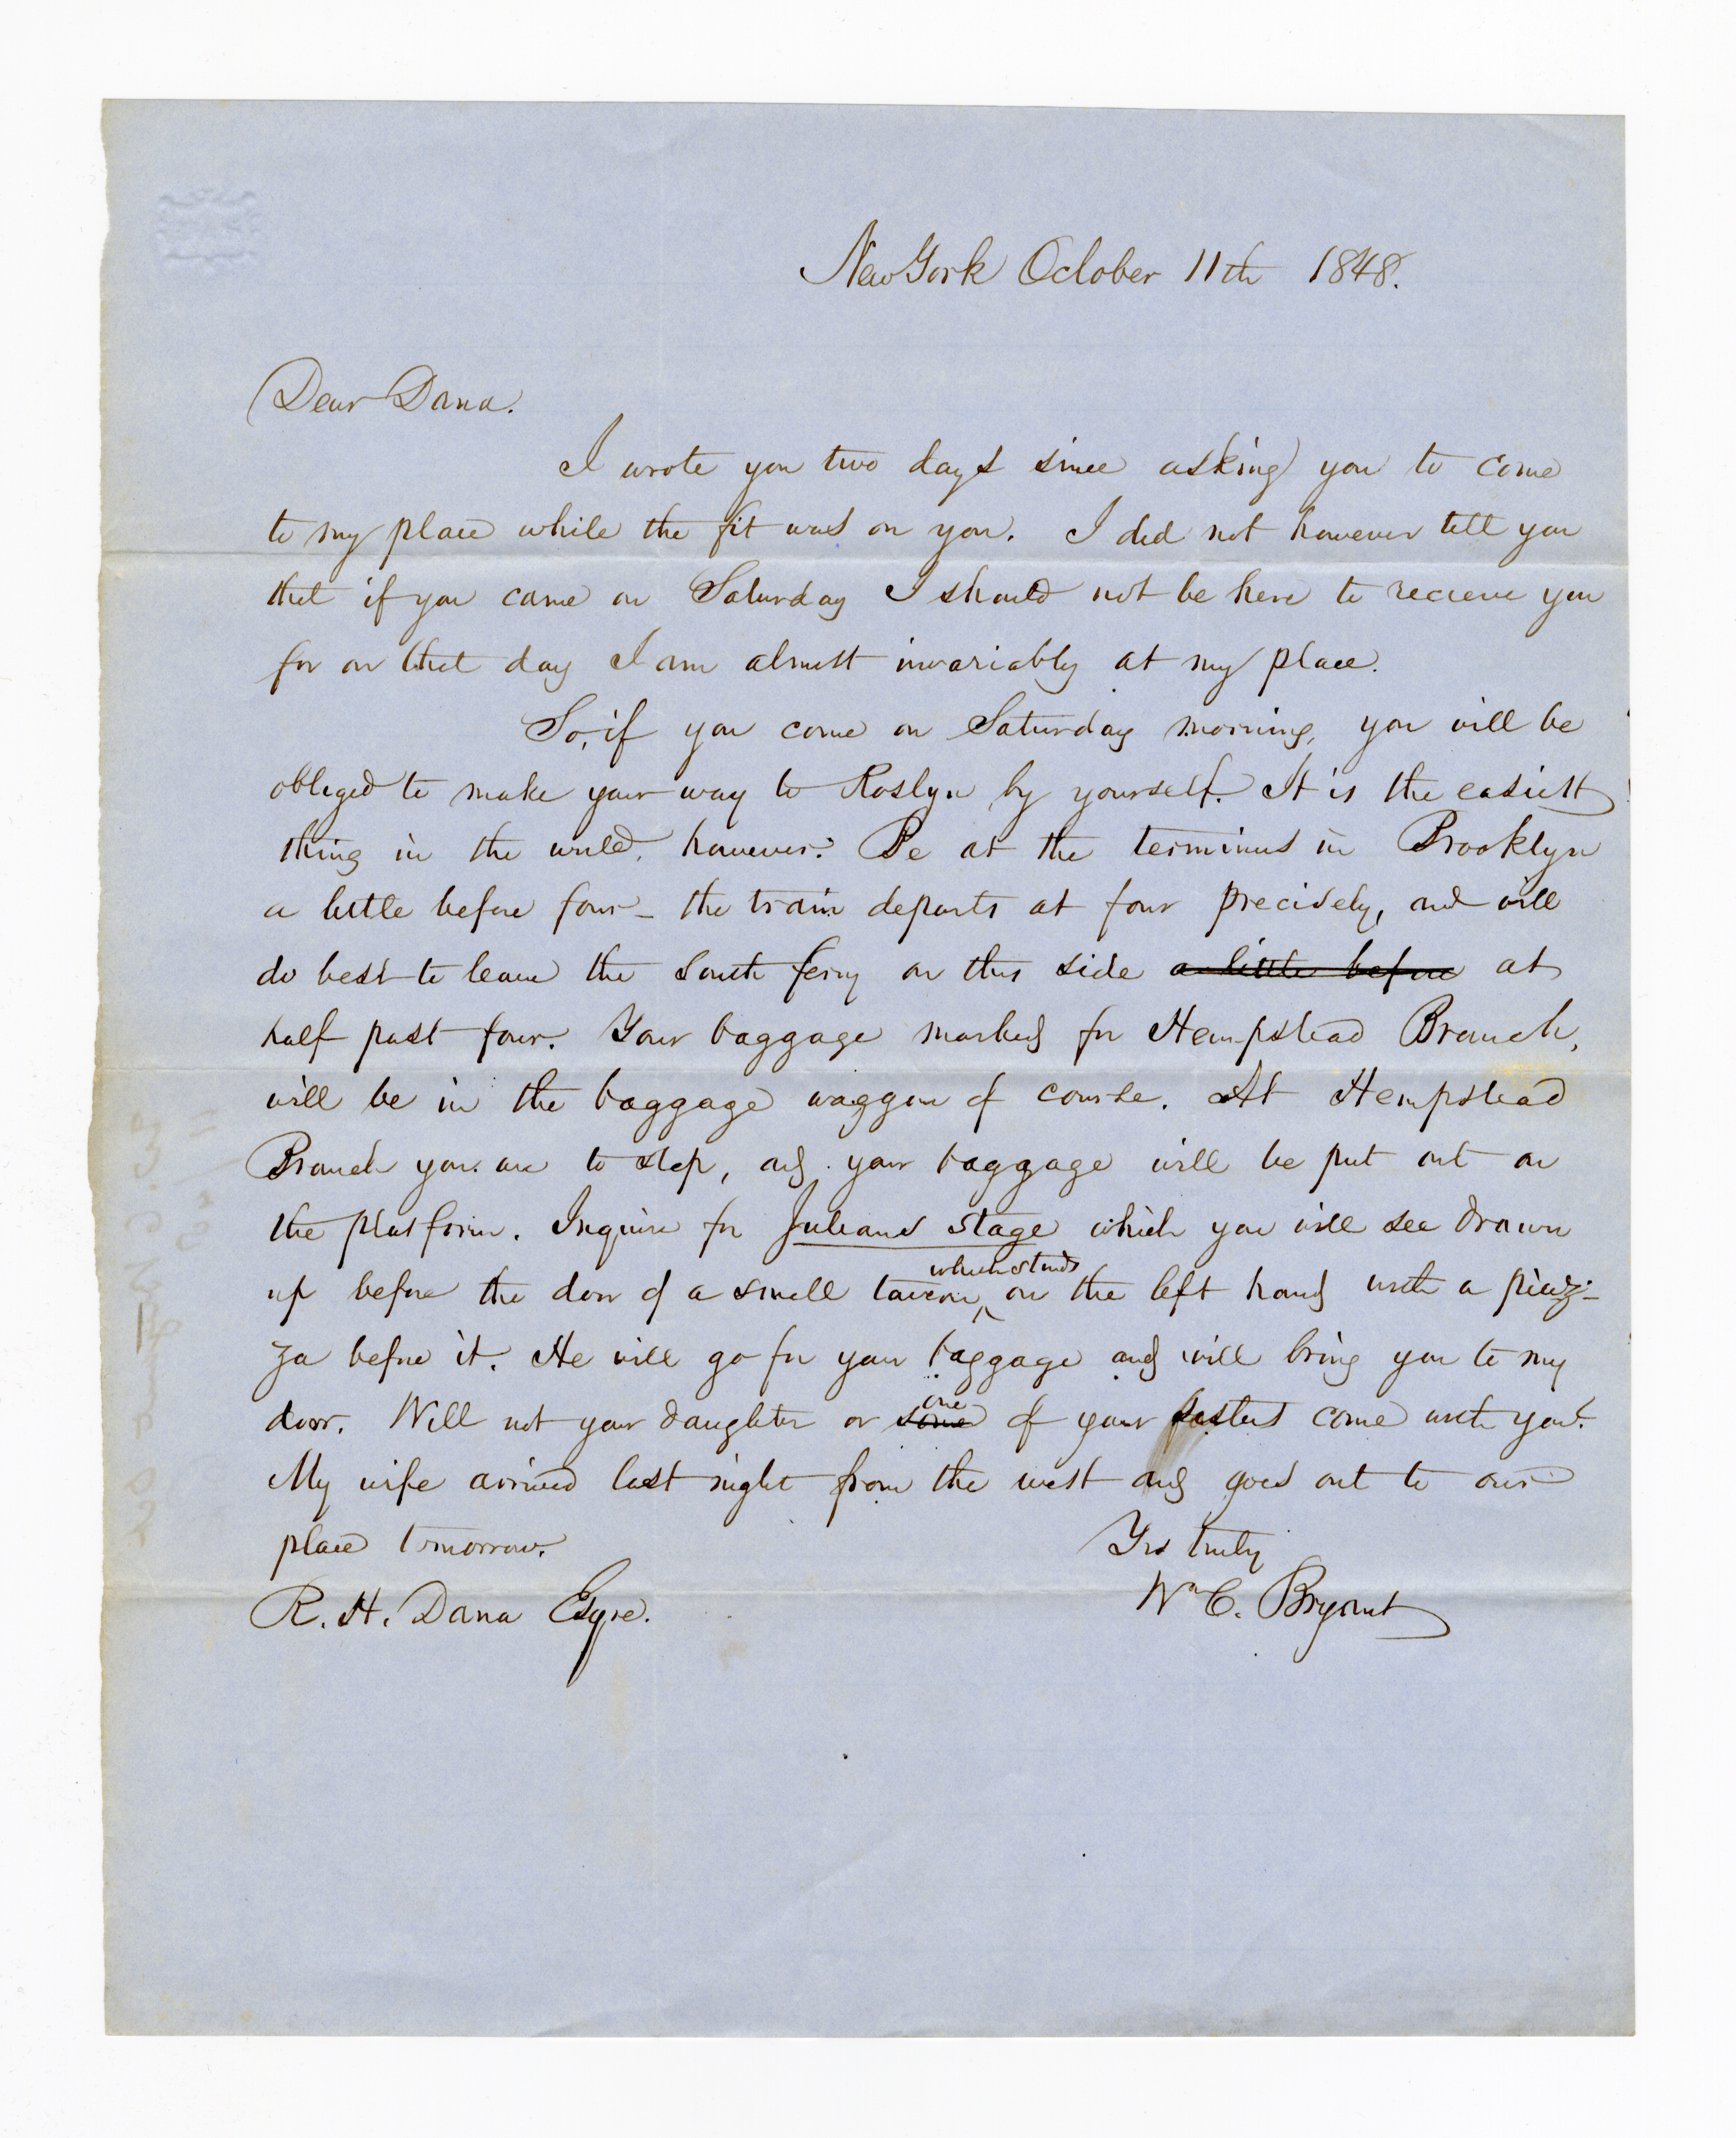 New York October 11th 1848.
Dear Dana.
I wrote you two days since asking you to come
to my place while the fit was on you. I did not however tell you
that if you came on Saturday I should not be here to recieve you
for on that day I am almost invariably at my place.
So, if you come on Saturday morning, you will be
obliged to make your way to Roslyn by yourself. It is the easiest
thing in the world, however. Be at the terminus in Brooklyn
a little before four – the train departs at four precisely, and will
do best to leave the South ferry on this side a little before at
half past four. Your baggage marked for Hempstead Branch,
will be in the baggage waggon of course. At Hempstead
Branch you are to stop, and your baggage will be put out on
the platform. Inquire for Julians stage which you will see drawn
which stands
up before the door of a small tavern, on the left hand with a piaz-
za before it. He will go for your baggage and will bring you to my
one
door. Will not your daughter or some of your sisters come with you?
My wife arrived last night from the west and goes out to our
place tomorrow.
Yrs truly
R. H. Dana Esqre.
Wm C. Bryant